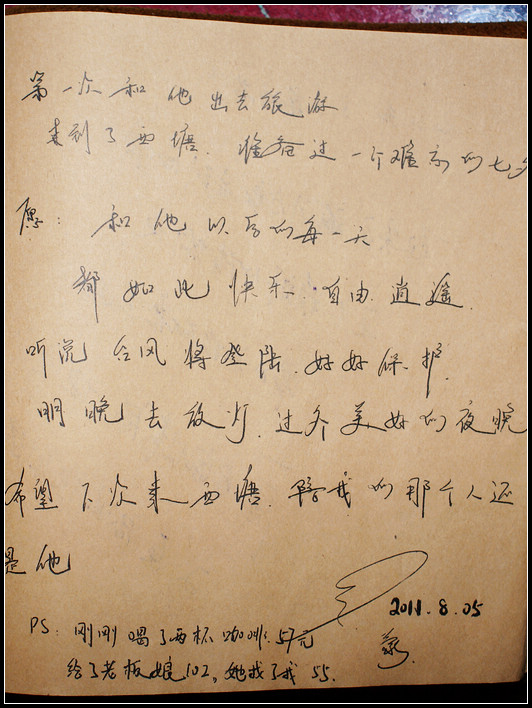 第一次和他出去旅游
来到了西塘. 准备过一个难忘的七夕
愿: 和他以后的每一天
都如此快乐.自由.逍遥.
听说台风将登陆.好好保护.
明晚去放灯.过个美好的夜晚
希望下次来西塘.陪我的那个人还
是他
2011.8.05
PS: 刚刚喝了两杯咖啡.57元
给了老板娘102,她找了我55.